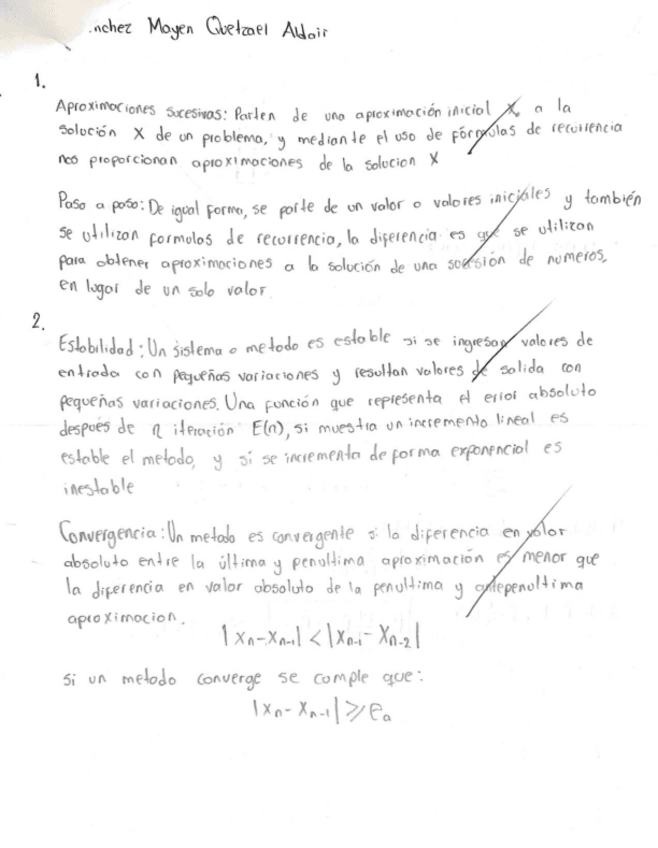 .nchez Mayen Quetzael Aldair
1.
Aproximaciones sucesivas: Parten de una aproximación inicial X₀ a la
solución X de un problema, y mediante el uso de fórmulas de recurrencia
nos proporcionan aproximaciones de la solucion X
Paso a paso: De igual forma, se parte de un valor o valores iniciales y también
se utilizan formulas de recurrencia, la diferencia es que se utilizan
para obtener aproximaciones a la solución de una sucesión de numeros,
en lugar de un solo valor.
2.
Estabilidad: Un sistema o metodo es estable si se ingresan valores de
entrada con pequeñas variaciones y resultan valores de salida con
pequeñas variaciones. Una función que representa el error absoluto
después de n iteración E(n), si muestra un incremento lineal es
estable el metodo, y si se incrementa de forma exponencial es
inestable
Convergencia: Un metodo es convergente si la diferencia en valor
absoluto entre la última y penultima aproximación es menor que
la diferencia en valor absoluto de la penultima y antepenultima
aproximacion.
|Xn-Xn-1| < |Xn-1-Xn-2|
Si un metodo converge se comple que:
|Xn-Xn-1| ⩾ ea